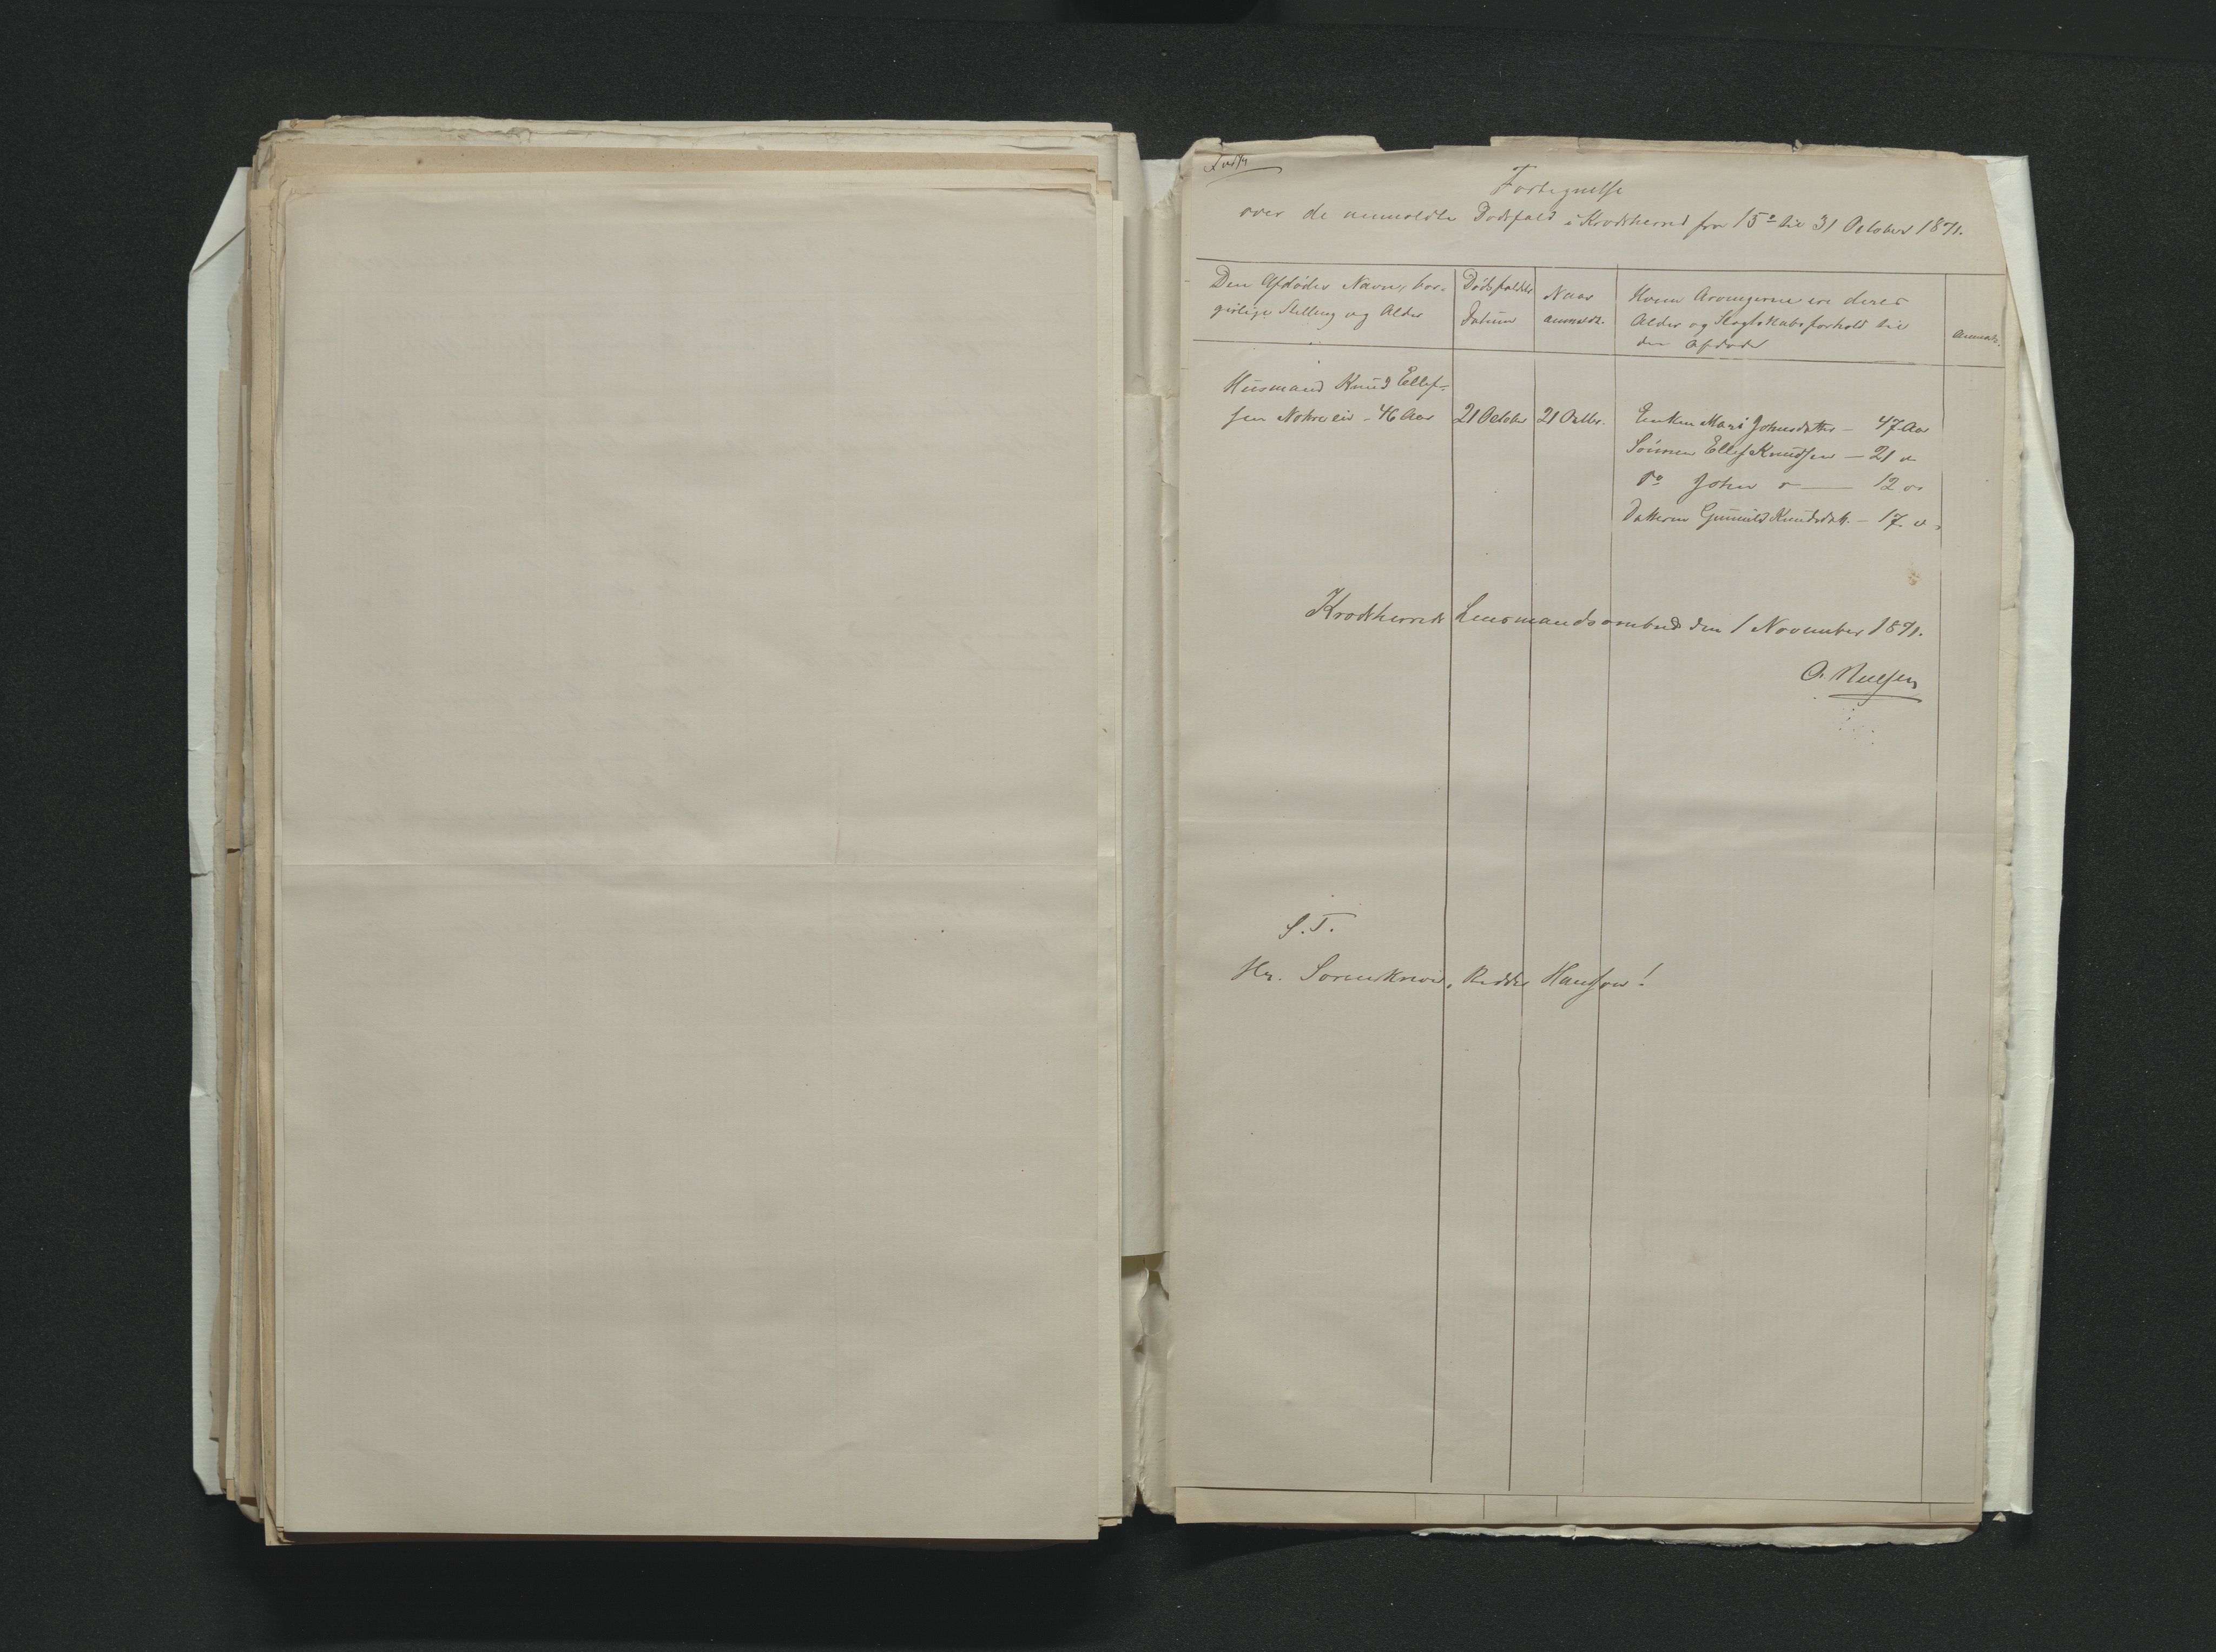 Fortegnelse
over de anmeldte Dødsfald i Krødsherred fra 15de til 31 October 1871.
Den Afdødes Navn, bor- Dødsfaldets Naar Hvem Arvingerne ere deres
gerlige Stilling og Alder Datum anmeldt. Alder og Slægtskabsforhold til Anmærk.
den Afdøde
Husmand Knud Ellef-
sen eie - 46 Aar 21 October 21 Octbr. Enken Mari Johnsdatter - 47 Aar
Sønnen Ellef Knudsen - 21 "
Do John " - 12 "
Datteren Gunild Knudsdatt. - 17 "
Krødsherreds Lensmandsombud den 1 November 1871.
S. T.
Hr. Sorenskriver, Ridder Hansson!